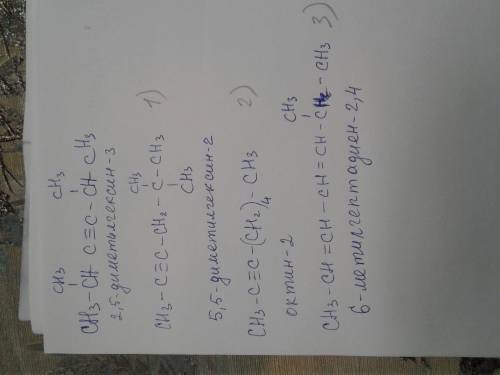 CH₃ CH₃
CH₃-CH C≡C-CH CH₃
2,5-диметилгексин-3
1)
CH₃
CH₃-C≡C-CH₂-C-CH₃
CH₃
5,5-диметилгексин-2
2)
CH₃-C≡C-(CH₂)₄-CH₃
октин-2
CH₃
CH₃-CH=CH-CH=CH-CH-CH₃ 3)
6-метилгептадиен-2,4